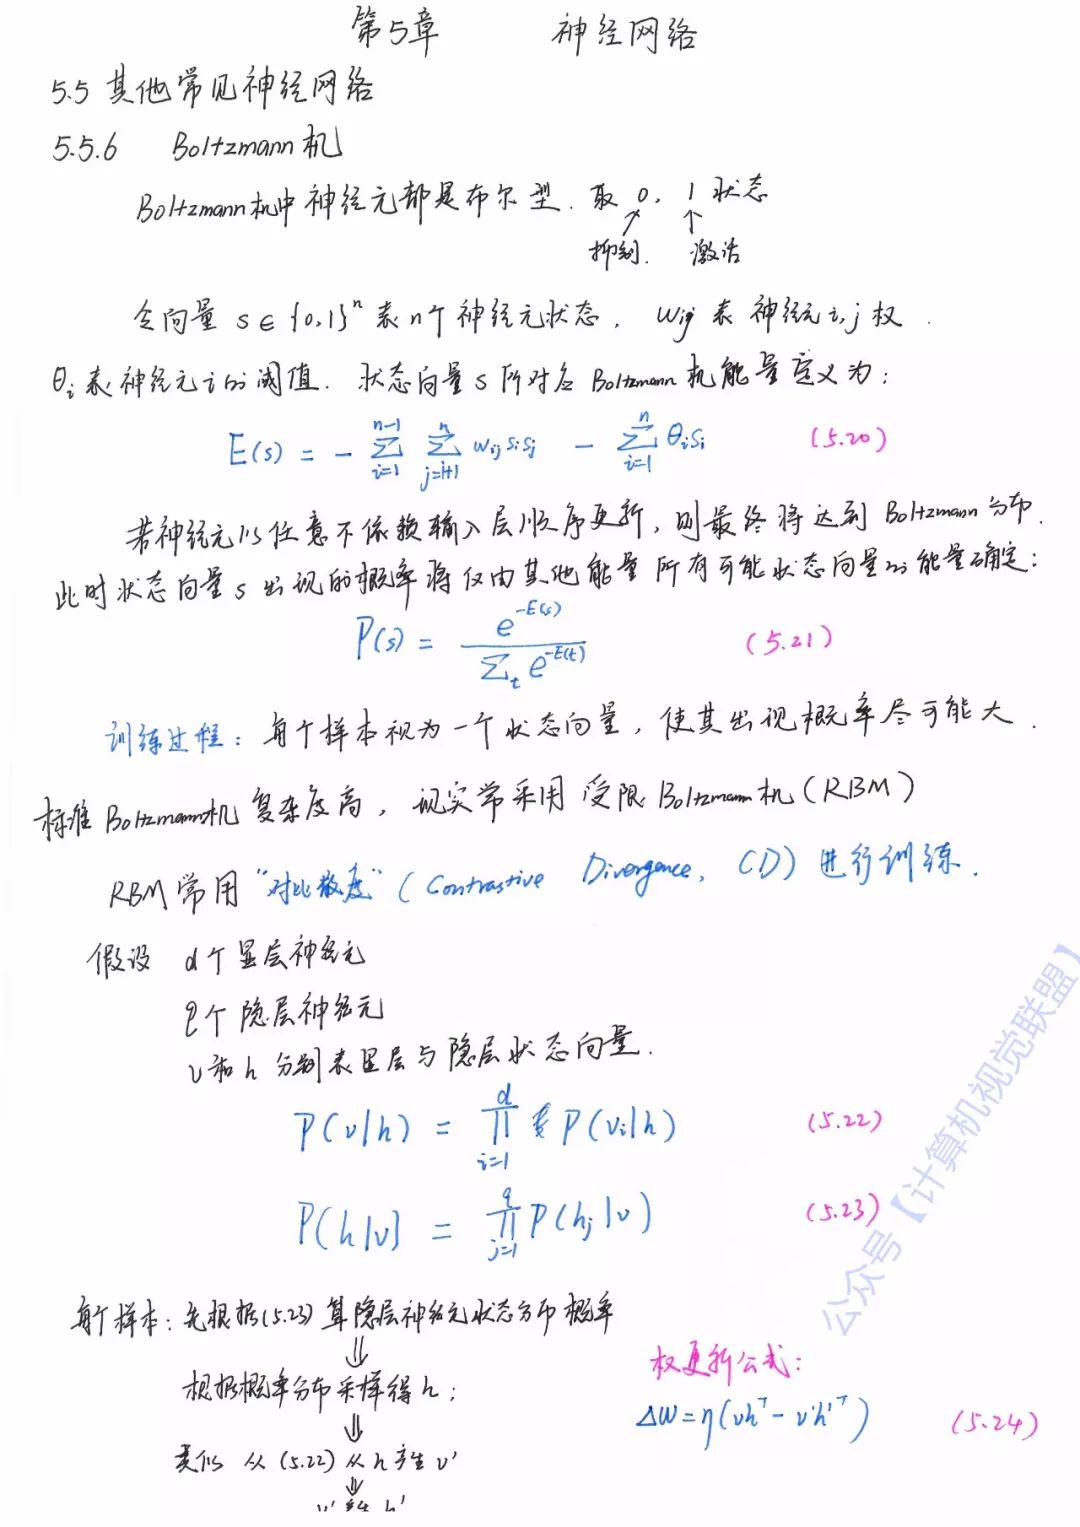 第5章 神经网络
5.5 其他常见神经网络
5.5.6 Boltzmann机
Boltzmann机中神经元都是布尔型. 取 0, 1 状态
抑制. 激活
令向量 s ∈ {0,1}ⁿ 表n个神经元状态, wij 表 神经元i,j权.
θi表神经元i的阈值. 状态向量s所对应Boltzmann机能量定义为:
E(s) = - ∑_{i=1}^{n-1} ∑_{j=i+1}^{n} wij si sj - ∑_{i=1}^{n} θi si (5.20)
若神经元以任意不依赖输入层顺序更新, 则最终将达到Boltzmann分布.
此时状态向量s出现的概率将仅由其他能量所有可能状态向量的能量确定:
P(s) = e^{-E(s)} / ∑_t e^{-E(t)} (5.21)
训练过程: 每个样本视为一个状态向量, 使其出现概率尽可能大.
标准Boltzmann机复杂度高, 现实常采用受限Boltzmann机(RBM)
RBM常用“对比散度”(Contrastive Divergence, CD)进行训练.
假设 d个显层神经元
q个隐层神经元
v和h分别表显层与隐层状态向量.
P(v|h) = ∏_{i=1}^{d} P(vi|h) (5.22)
P(h|v) = ∏_{j=1}^{q} P(hj|v) (5.23)
每个样本: 先根据(5.23)算隐层神经元状态分布概率
⇓
根据概率分布采样得h;
⇓
类似 从(5.22)从h产生v'
⇓
权更新公式:
ΔW = η(vhᵀ - v'h'ᵀ) (5.24)
公众号【计算机视觉联盟】